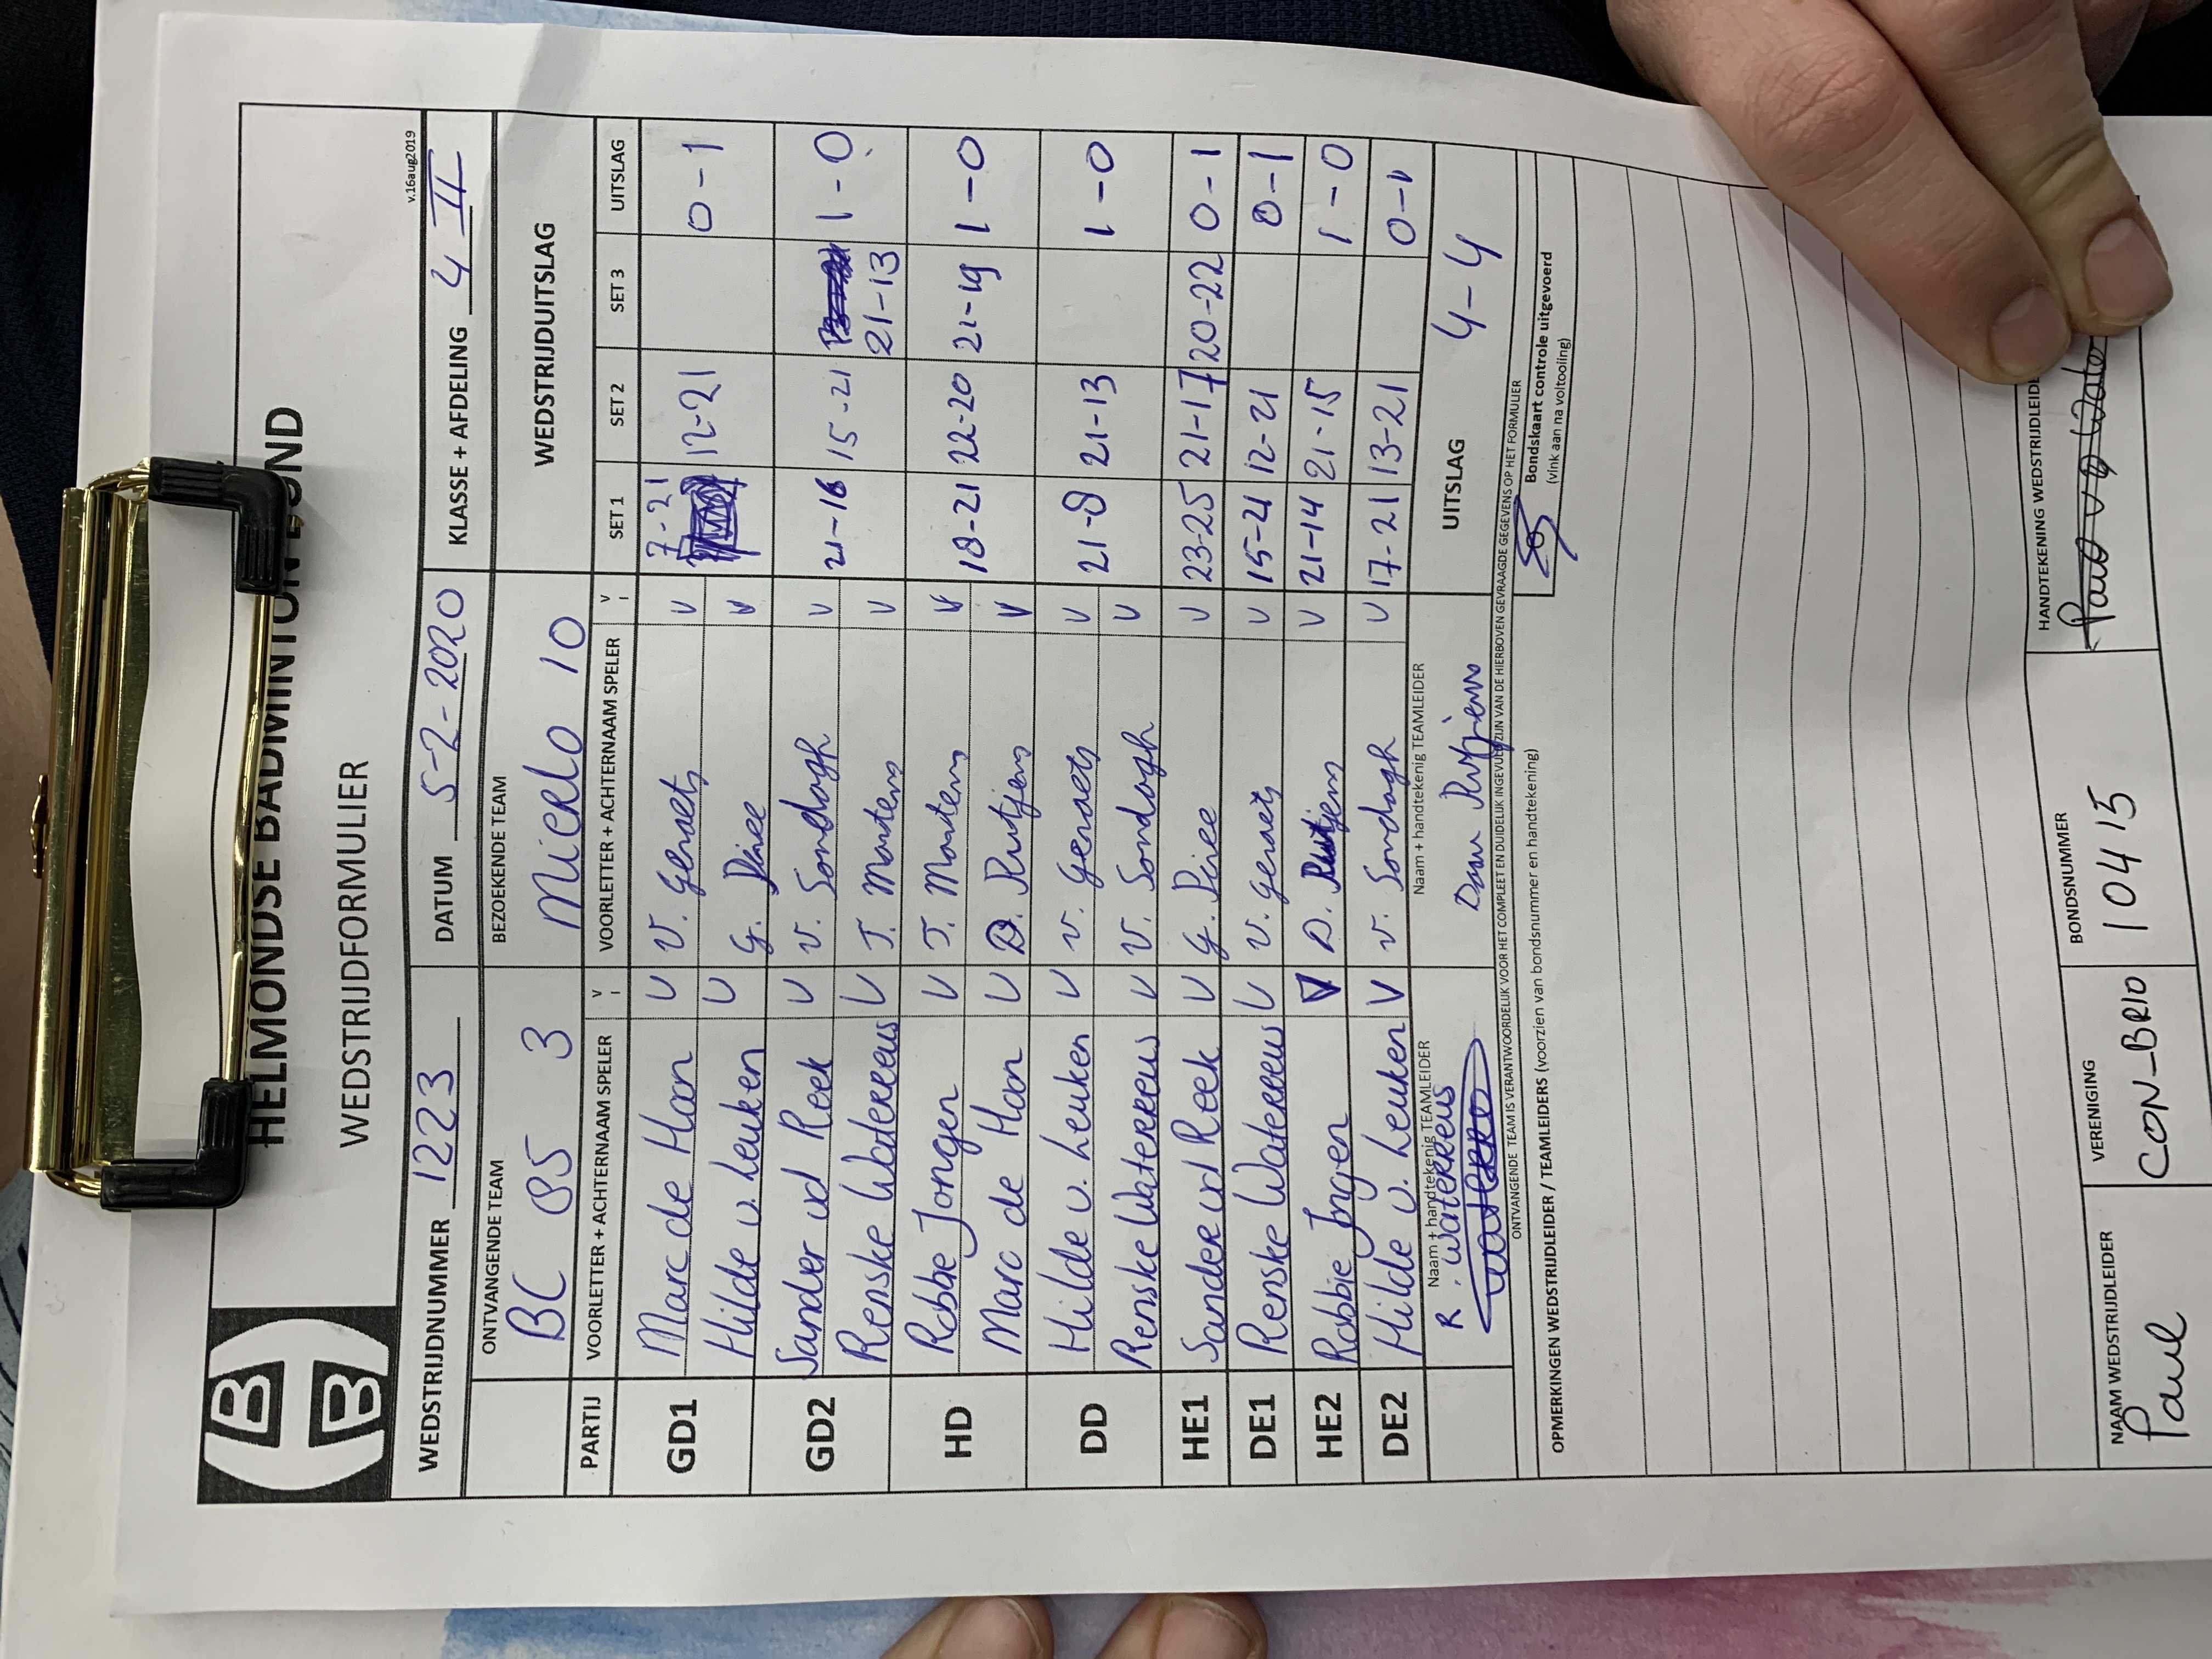 HELMONDSE BADMINTON BOND
WEDSTRIJDFORMULIER
v.16aug2019
WEDSTRIJDNUMMER 1223 DATUM 5-2-2020 KLASSE + AFDELING 4 II
ONTVANGENDE TEAM BEZOEKENDE TEAM WEDSTRIJDUITSLAG
BC 85 3 MIERLO 10
PARTIJ VOORLETTER + ACHTERNAAM SPELER V VOORLETTER + ACHTERNAAM SPELER V SET 1 SET 2 SET 3 UITSLAG
GD1 Marc de Haan V V. Geraets V 7-21 12-21 0-1
Hilde v. Leuken V G. V
GD2 Sander vd Reek V V. Sondagh V 21-16 15-21 21-13 1-0
Renske Waterreus V J. Martens V
HD Robbie Jongen V J. Martens V 18-21 22-20 21-19 1-0
Marc de Haan V D. Rutjens V
DD Hilde v. Leuken V V. Geraets V 21-8 21-13 1-0
Renske Waterreus V V. Sondagh V
HE1 Sander vd Reek V G. V 23-25 21-17 20-22 0-1
DE1 Renske Waterreus V V. Geraets V 15-21 12-21 0-1
HE2 Robbie Jongen V D. Rutjens V 21-14 21-15 1-0
DE2 Hilde v. Leuken V V. Sondagh V 17-21 13-21 0-1
Naam + handtekenig TEAMLEIDER Naam + handtekenig TEAMLEIDER UITSLAG 4-4
R. Waterreus Daan Rutjens
ONTVANGENDE TEAM IS VERANTWOORDELIJK VOOR HET COMPLEET EN DUIDELIJK INGEVULD ZIJN VAN DE HIERBOVEN GEVRAAGDE GEGEVENS OP HET FORMULIER
Bondskaart controle uitgevoerd
(vink aan na voltooiing)
OPMERKINGEN WEDSTRIJDLEIDER / TEAMLEIDERS (voorzien van bondsnummer en handtekening)
NAAM WEDSTRIJDLEIDER VERENIGING BONDSNUMMER HANDTEKENING WEDSTRIJDLEIDE
Paul CON-BRIO 10415